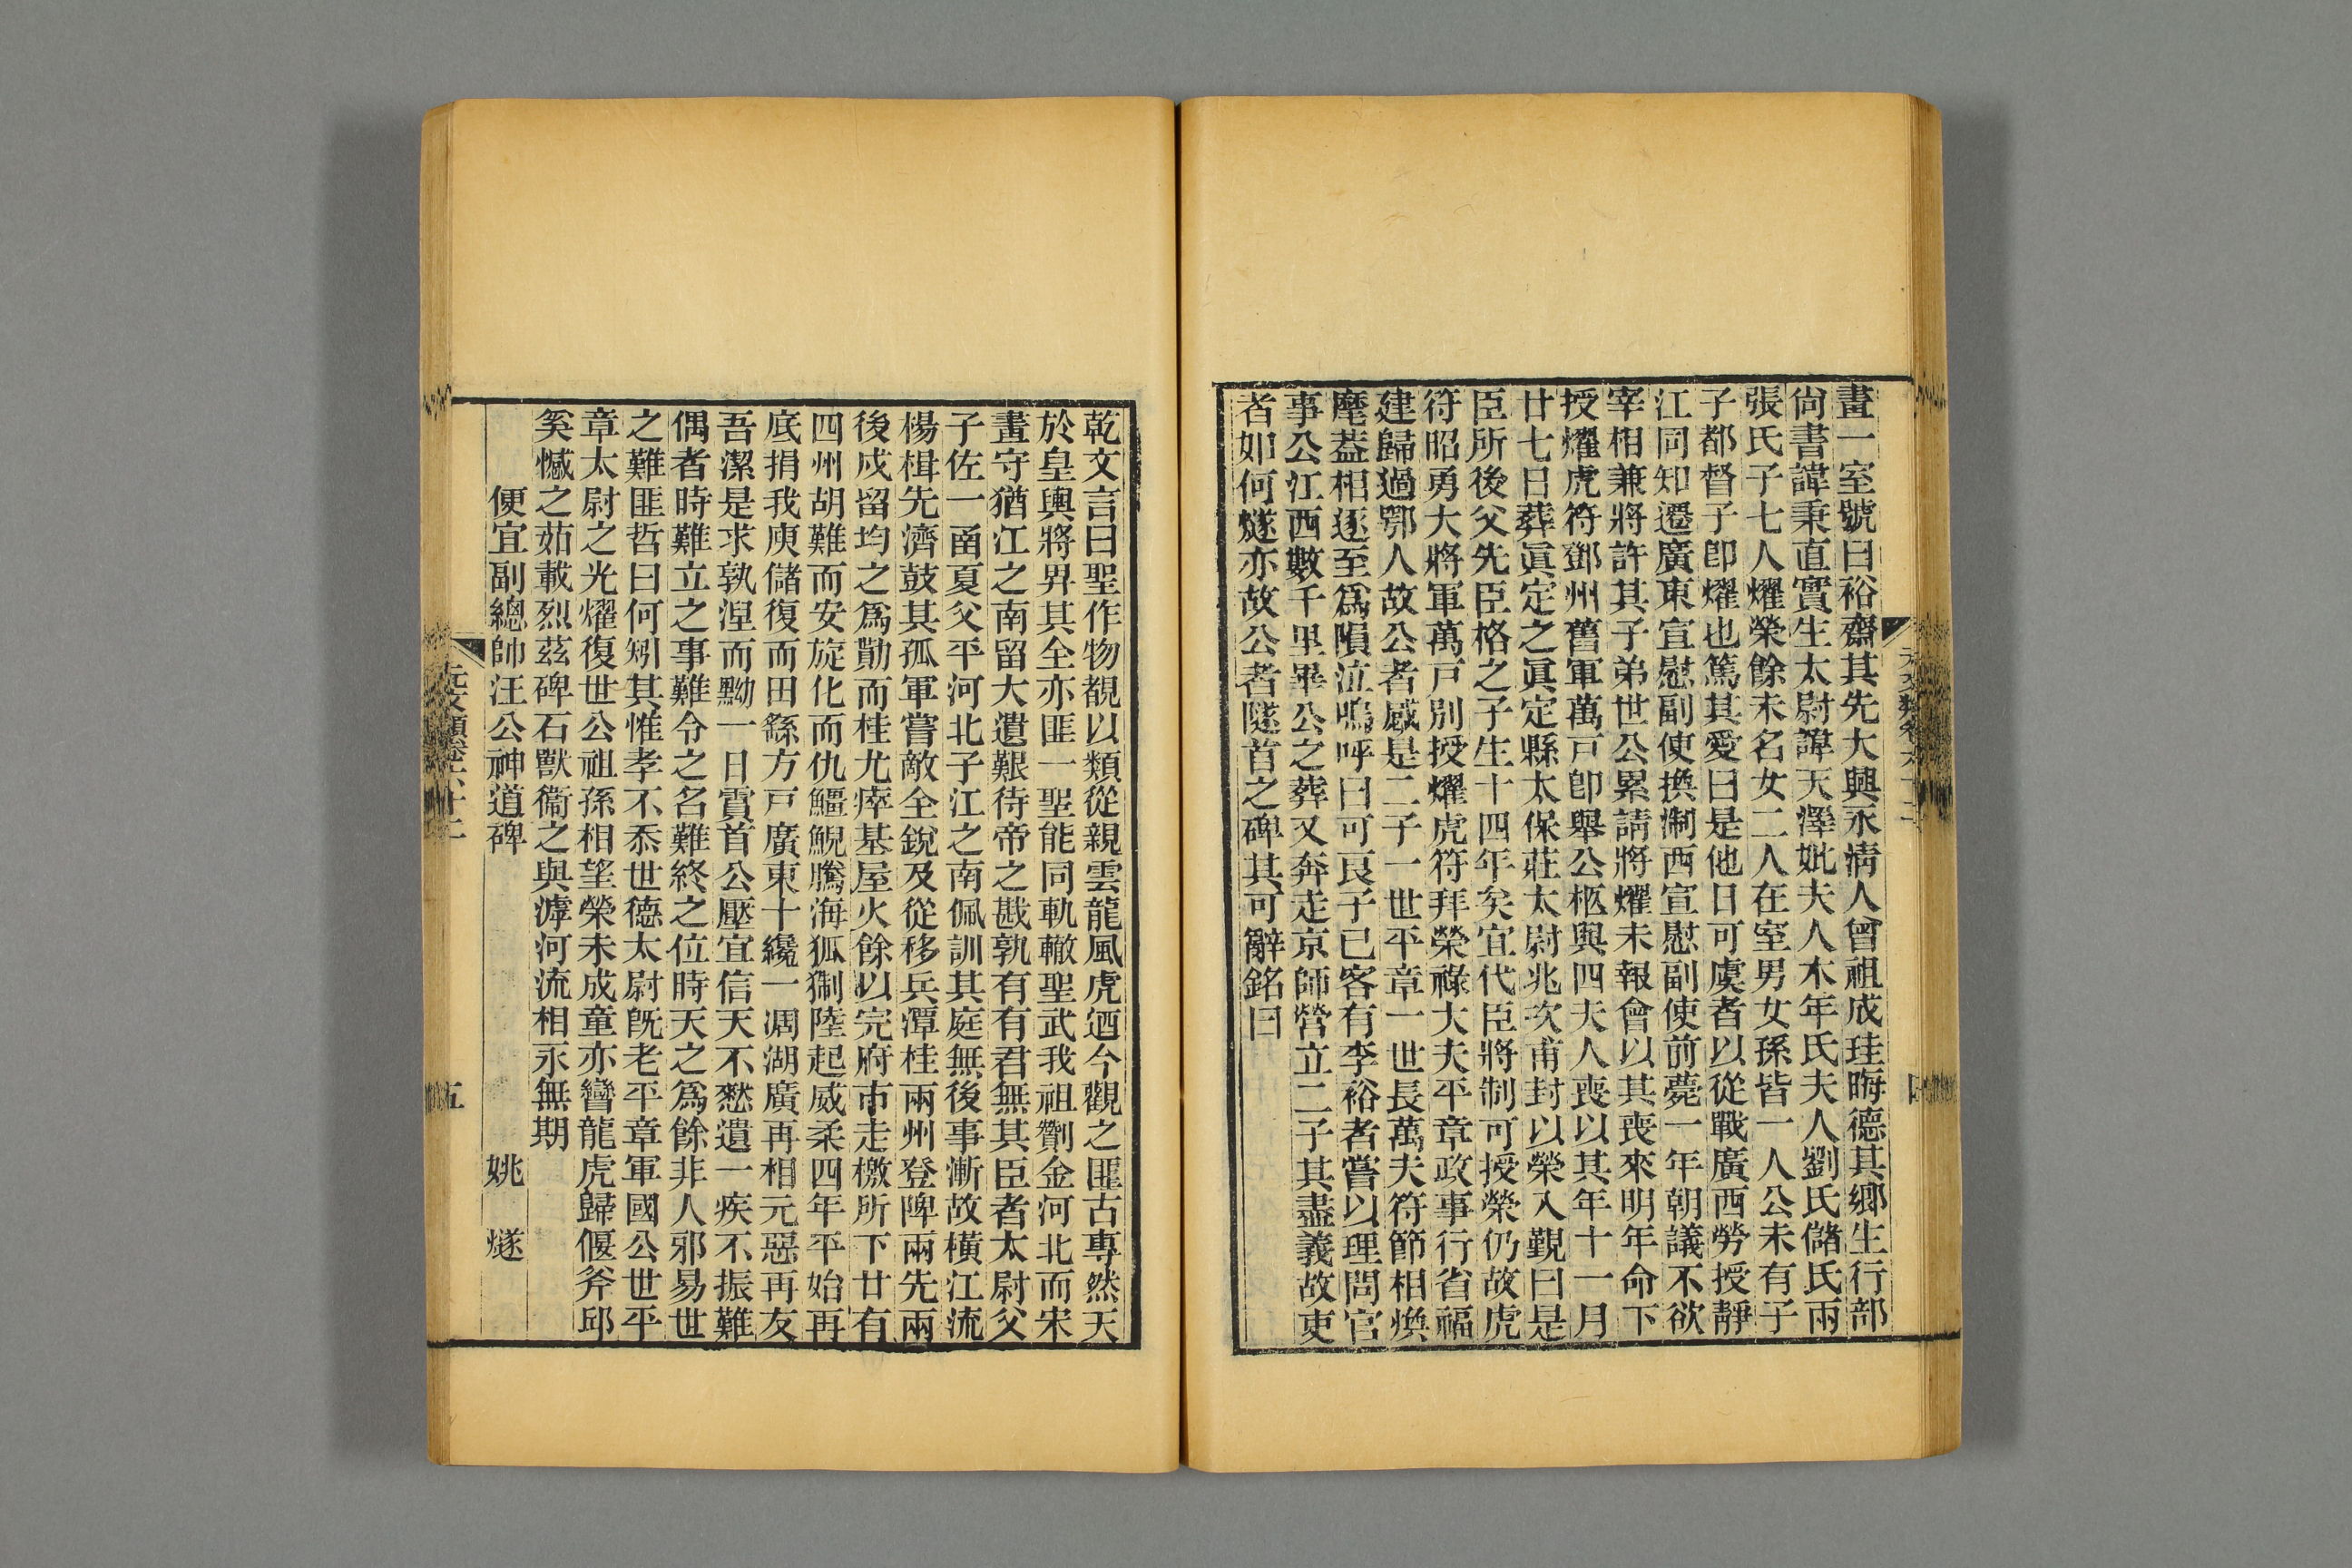 畫一室號曰裕齋其先大興永淸人曾祖成珪晦德其鄉生行部
尙書諱秉直實生太尉諱天澤妣夫人木年氏夫人劉氏儲氏兩
張氏子七人燿榮餘未名女二人在室男女孫皆一人公未有子
子都督子卽燿也篤其愛曰是他日可虞者以從戰廣西勞授靜
江同知遷廣東宣慰副使換淛西宣慰副使前薨一年朝議不欲
宰相兼將許其子弟世公累請將燿未報會以其喪來明年命下
授燿虎符鄧州舊軍萬戸卽舉公柩與四夫人喪以其年十一月
廿七日葬眞定之眞定縣太保莊太尉兆次甫封以榮入覲曰是
臣所後父先臣格之子生十四年矣宜代臣將制可授榮仍故虎
符昭勇大將軍萬戸別授燿虎符拜榮祿大夫平章政事行省福
建歸過鄂人故公者感是二子一世平章一世長萬夫符節相煥
麾葢相逐至爲隕泣嗚呼曰可良子已客有李裕者嘗以理問官
事公江西數千里畢公之葬又奔走京師營立二子其盡義故吏
者如何燧亦故公者隧首之碑其可辭銘曰
乾文言曰聖作物覩以類從親雲龍風虎迺今觀之匪古專然天
於皇輿將畀其全亦匪一聖能同軌轍聖武我祖劗金河北而宋
畫守猶江之南留大遺艱待帝之戡孰有有君無其臣者太尉父
子佐一甬夏父平河北子江之南佩訓其庭無後事漸故橫江流
楊楫先濟鼓其孤軍嘗敵全銳及從移兵潭桂兩州登陴兩先兩
後成留均之爲勩而桂尤瘁基屋火餘以完府市走檄所下廿有
四州胡難而安旋化而仇鱷鯢騰海狐猘陸起威柔四年平始再
底捐我庾儲復而田繇方戸廣東十纔一凋湖廣再相元惡再友
吾潔是求孰涅而黝一日霣首公壓宜信天不憖遺一疾不振難
偶者時難立之事難令之名難終之位時天之爲餘非人邪易世
之難匪哲曰何矧其惟孝不忝世德太尉旣老平章軍國公世平
章太尉之光燿復世公祖孫相望榮未成童亦巒龍虎歸偃斧邱
奚憾之茹載烈茲碑石獸衞之與滹河流相永無期
便宜副總帥汪公神道碑　姚　燧
元文類卷六十二
五